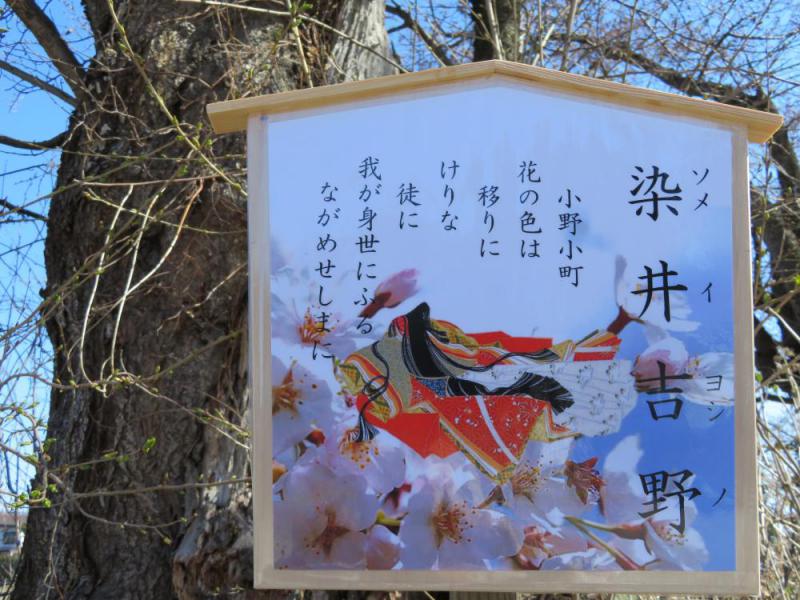 染井吉野
ソメイヨシノ
小野小町
花の色は
移りに
けりな
徒に
我が身世にふる
ながめせしまに